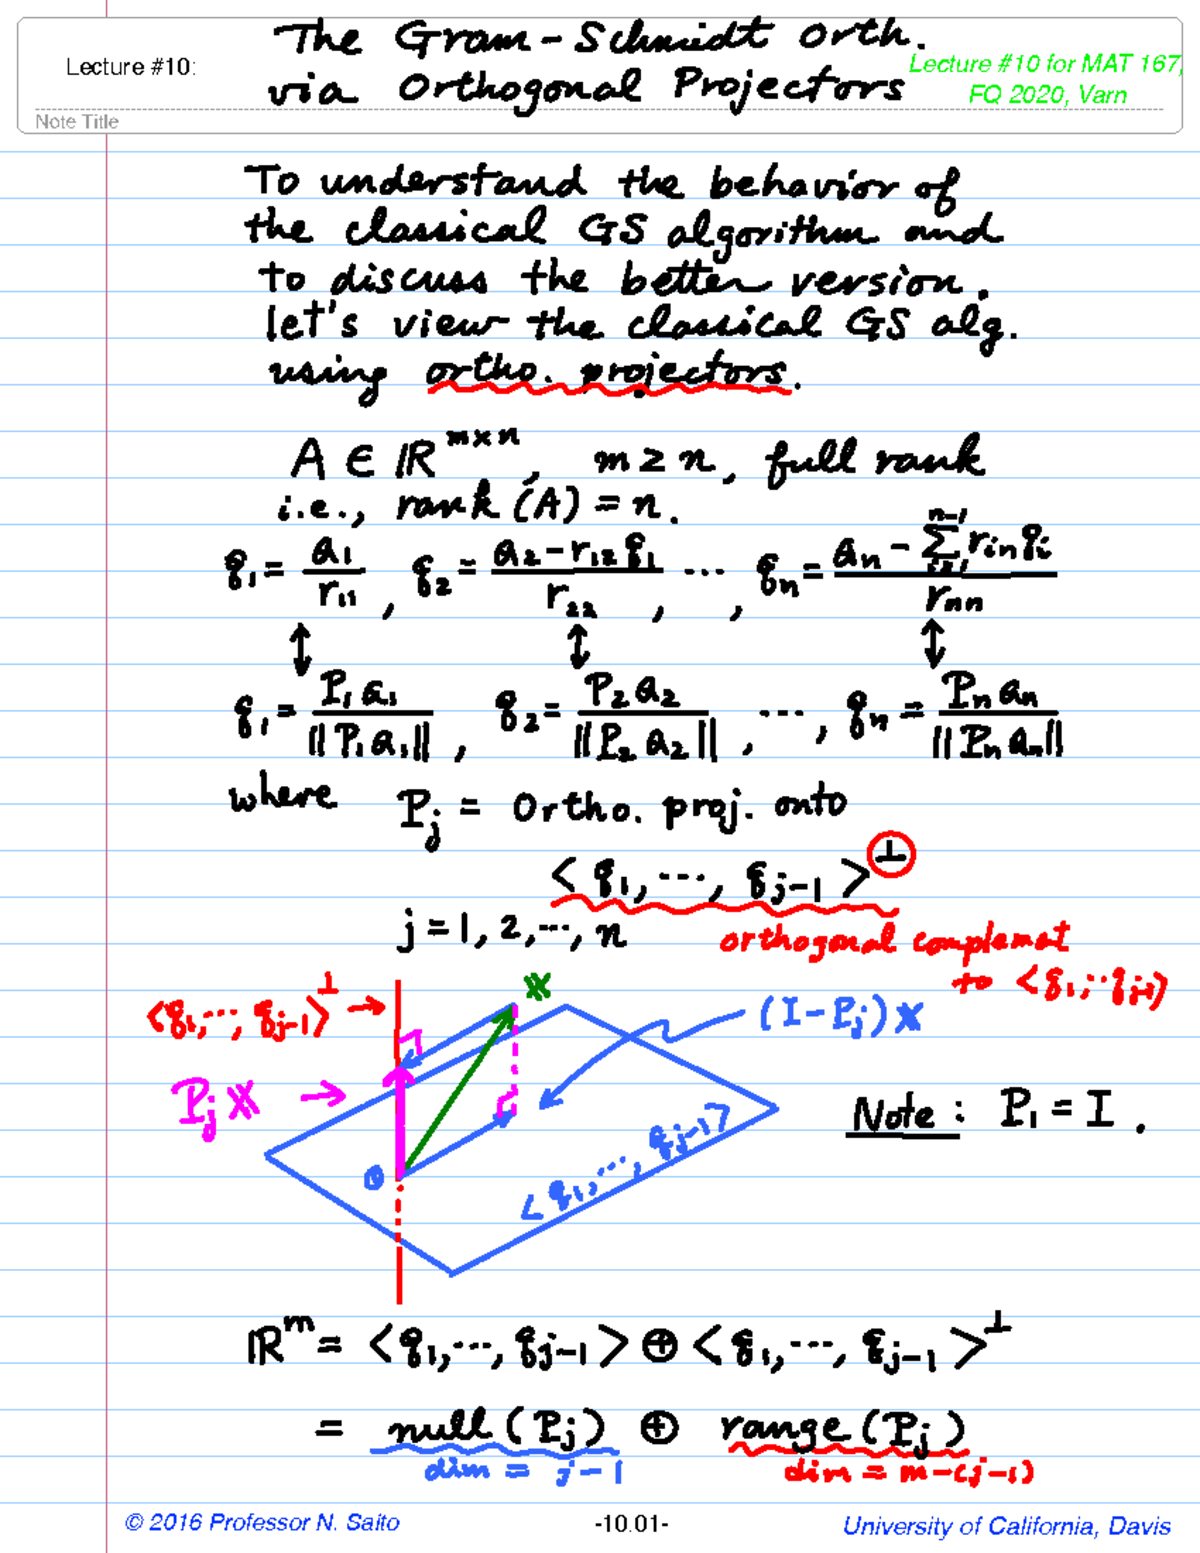 The Gram-Schmidt Orth.
Lecture #10:
via Orthogonal Projectors
Lecture #10 for MAT 167,
FQ 2020, Varn
Note Title
To understand the behavior of
the classical GS algorithm and
to discuss the better version,
let's view the classical GS alg.
using ortho. projectors.
A ∈ ℝ^{m×n}, m ≥ n, full rank
i.e., rank(A) = n.
q₁ = a₁/r₁₁, q₂ = (a₂ − r₁₂q₁)/r₂₂, ⋯, qₙ = (aₙ − Σ_{i=1}^{n-1} rᵢₙqᵢ)/rₙₙ
↕ ↕ ↕
q₁ = P₁a₁/||P₁a₁||, q₂ = P₂a₂/||P₂a₂||, ⋯, qₙ = Pₙaₙ/||Pₙaₙ||
where P_j = Ortho. proj. onto
<q₁,⋯, q_{j−1}>^⊥
j = 1, 2,⋯, n
orthogonal complemat
to <q₁,⋯q_{j-1}>
<q₁,⋯, q_{j−1}>^⊥ →
x
(I−P_j)x
P_j x →
Note: P₁ = I.
0
<q₁,⋯, q_{j−1}>
ℝ^m = <q₁,⋯, q_{j−1}> ⊕ <q₁,⋯, q_{j−1}>^⊥
= null(P_j) ⊕ range(P_j)
dim = j−1 dim = m−(j−1)
© 2016 Professor N. Saito
-10.01-
University of California, Davis